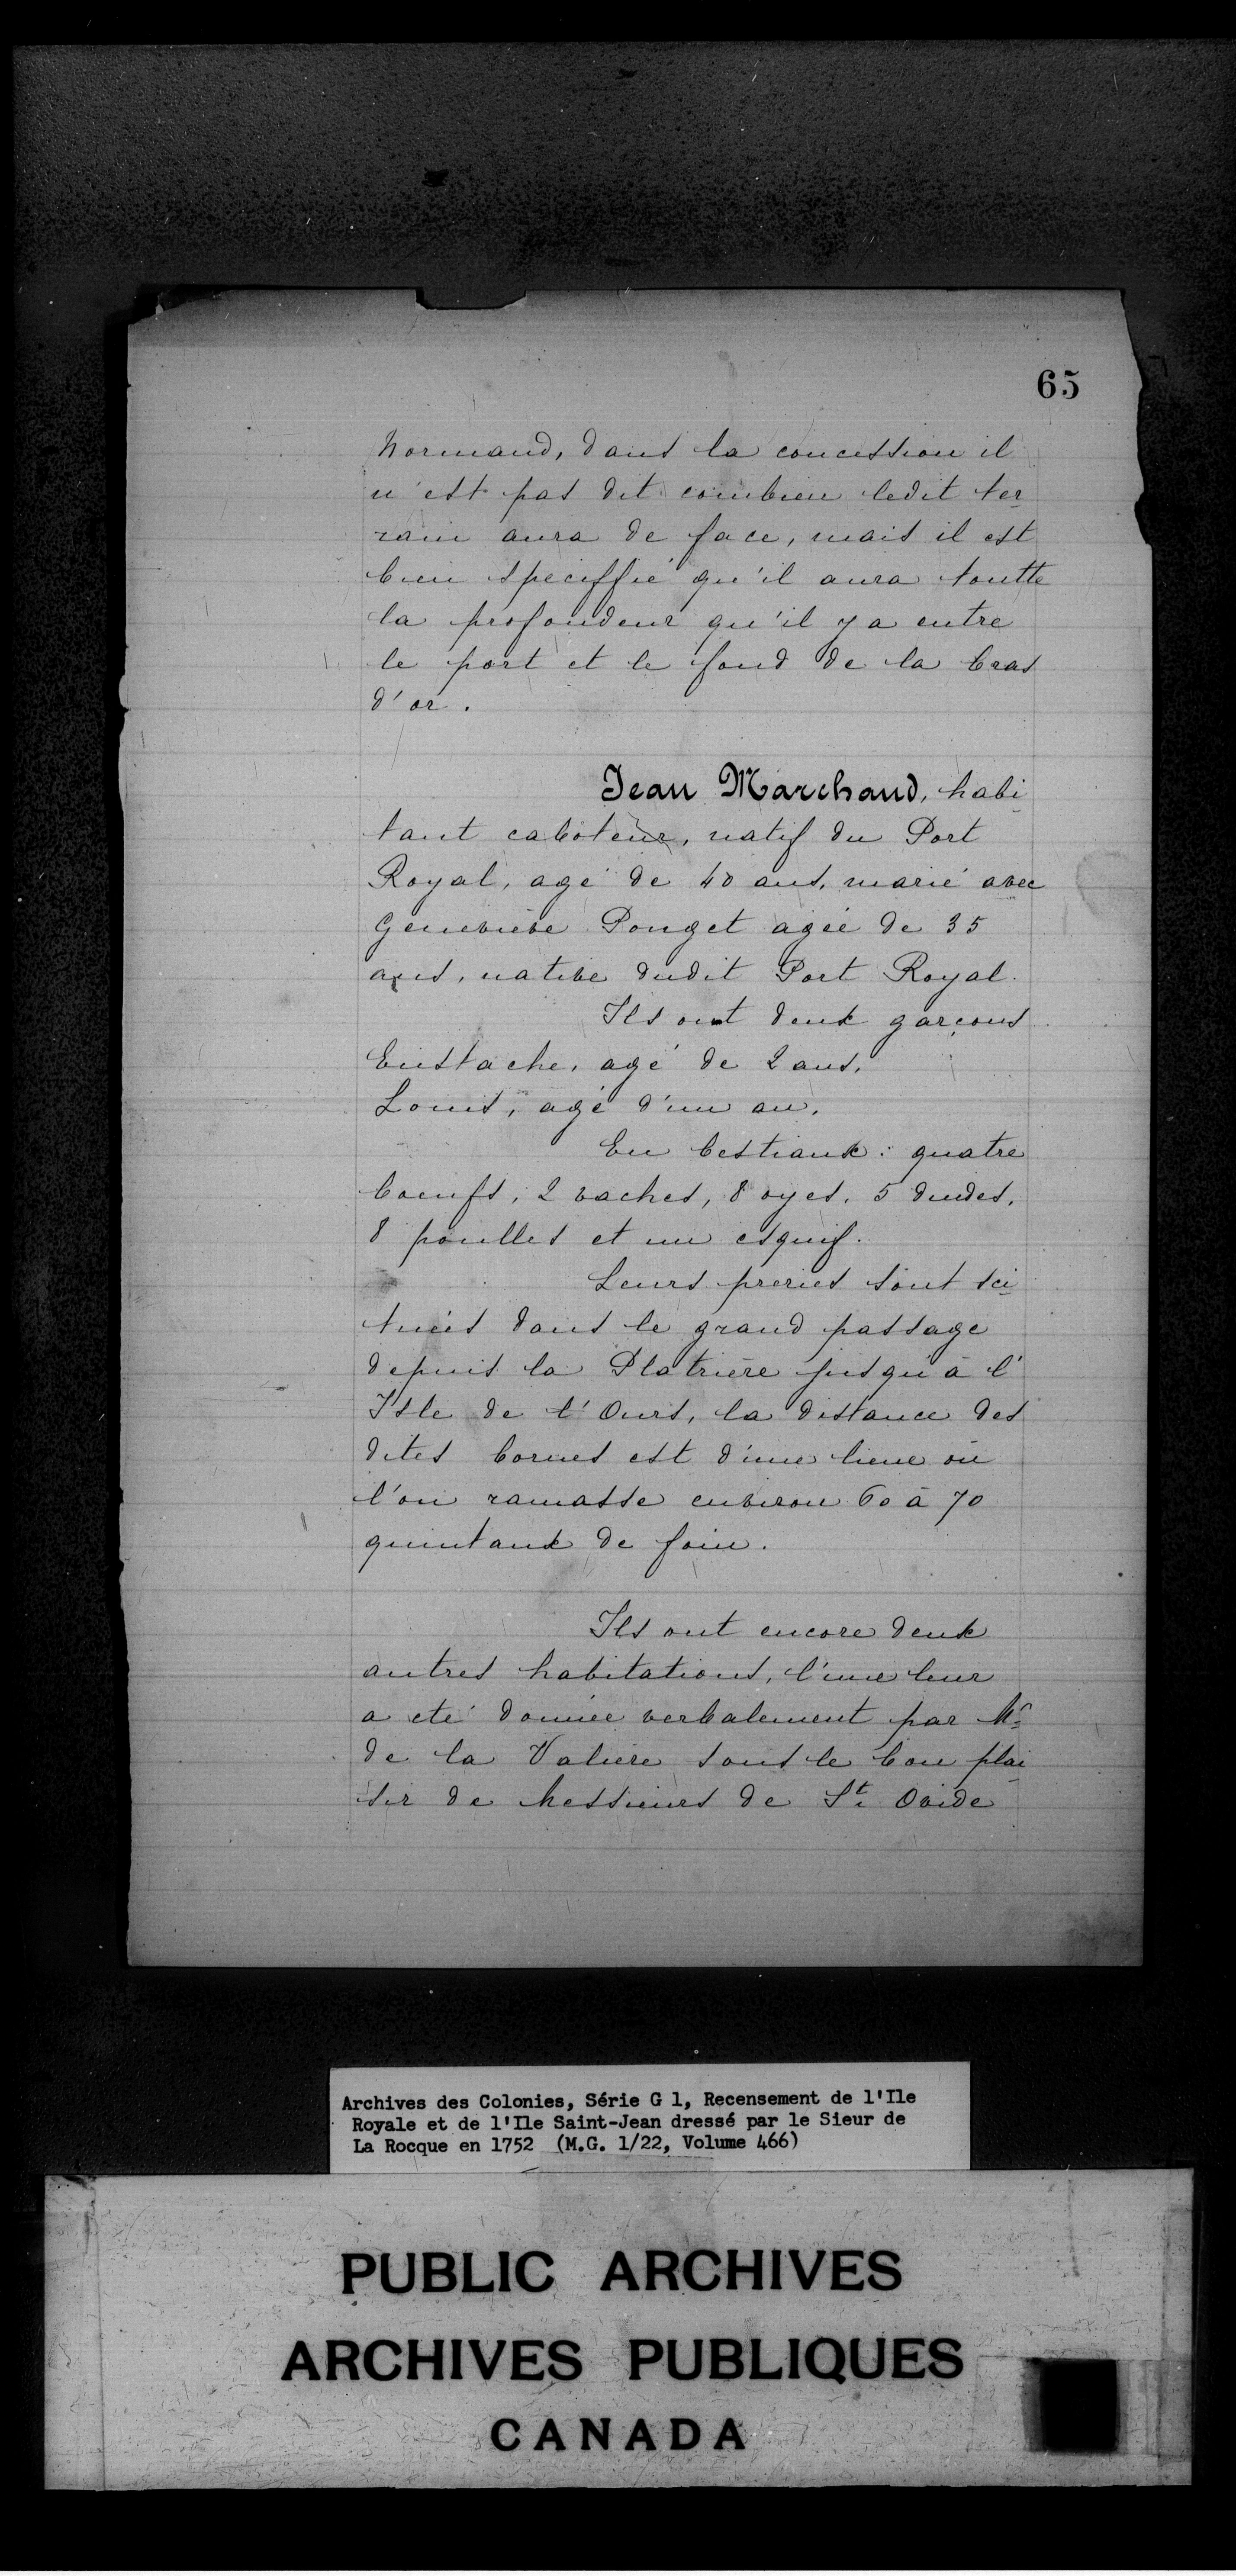 65
Normand, dans la concession il
n'est pas dit combien ledit ter
rain aura de face, mais il est
bien speciffié qu'il aura toutte
la profondeur qu'il y a entre
le port et le fond de la bras
d'or.
Jean Marchand, habi
tant caboteur, natif du Port
Royal, agé de 40 ans, marié avec
Geneviève Ponget agée de 35
ans, native dudit Port Royal.
Ils ont deux garçons
Eustache, agé de 2 ans,
Louis, agé d'un an,
En bestiaux : quatre
boeufs, 2 vaches, 8 oyes, 5 dindes,
8 poulles et un esquif.
Leurs preries sont sci
tuées dans le grand passage
depuis la Platrière jusqu'à l'
Isle de l'Ours, la distance des
dites bornes est d'une lieue où
l'on ramasse environ 60 à 70
quintaux de foin.
Ils ont encore deux
autres habitations, l'une leur
a eté donnée verbalement par Mr
de la Valière sous le bon plai
sir de Messieurs de St. Ovide
Archives des Colonies, Série G 1, Recensement de l'Ile
Royale et de l'Ile Saint-Jean dressé par le Sieur de
La Rocque en 1752 (M.G. 1/22, Volume 466)
PUBLIC ARCHIVES
ARCHIVES PUBLIQUES
CANADA